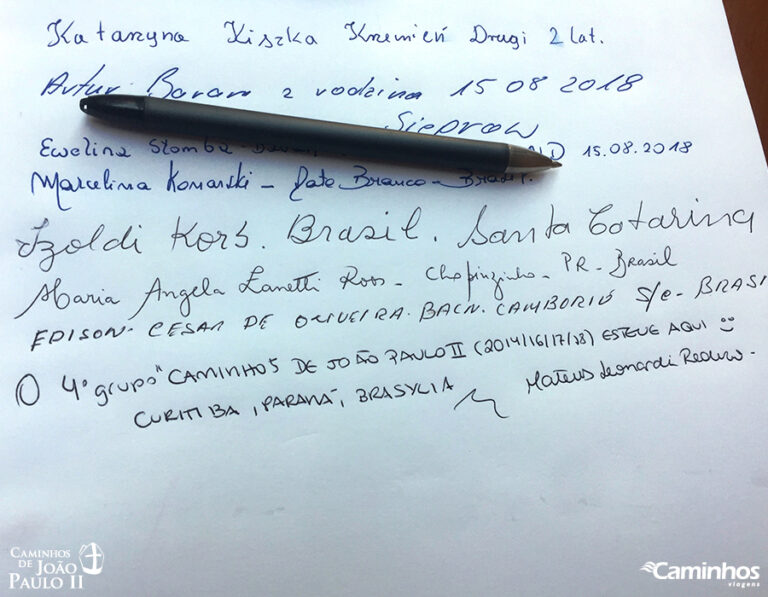 Katarzyna Kiszka Krzemień Drugi 2 lat.
Artur Baran z rodziną 15 08 2018
Siepraw
Ewelina Słomba 15.08.2018
Marcelina Komarski - Pato Branco - Brasil.
Izoldi Korb. Brasil. Santa Catarina
Maria Angela Zanetti Roos - Chopinzinho - PR - Brasil
EDISON CESAR DE OLIVEIRA. BALN. CAMBORIÚ S/C - BRASI
O 4º GRUPO "CAMINHOS DE JOÃO PAULO II (2014/16/17/18) ESTEVE AQUI
CURITIBA, PARANÁ, BRASYLIA
Mateus Leonardi
CAMINHOS DE JOÃO PAULO II
Caminhos viagens